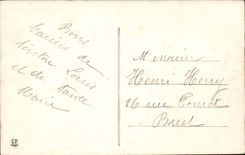 Bons
baisers de
tonton Louis
et de tante
Marie
Monsieur
Henri Henry
16 rue
Brest